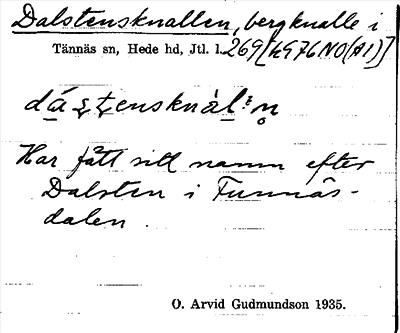 Dalstensknallen, bergknalle i
Tännäs sn, Hede hd, Jtl. l. 269
Har fått sitt namn efter
Dalsten i Funnäs-
dalen.
O. Arvid Gudmundson 1935.